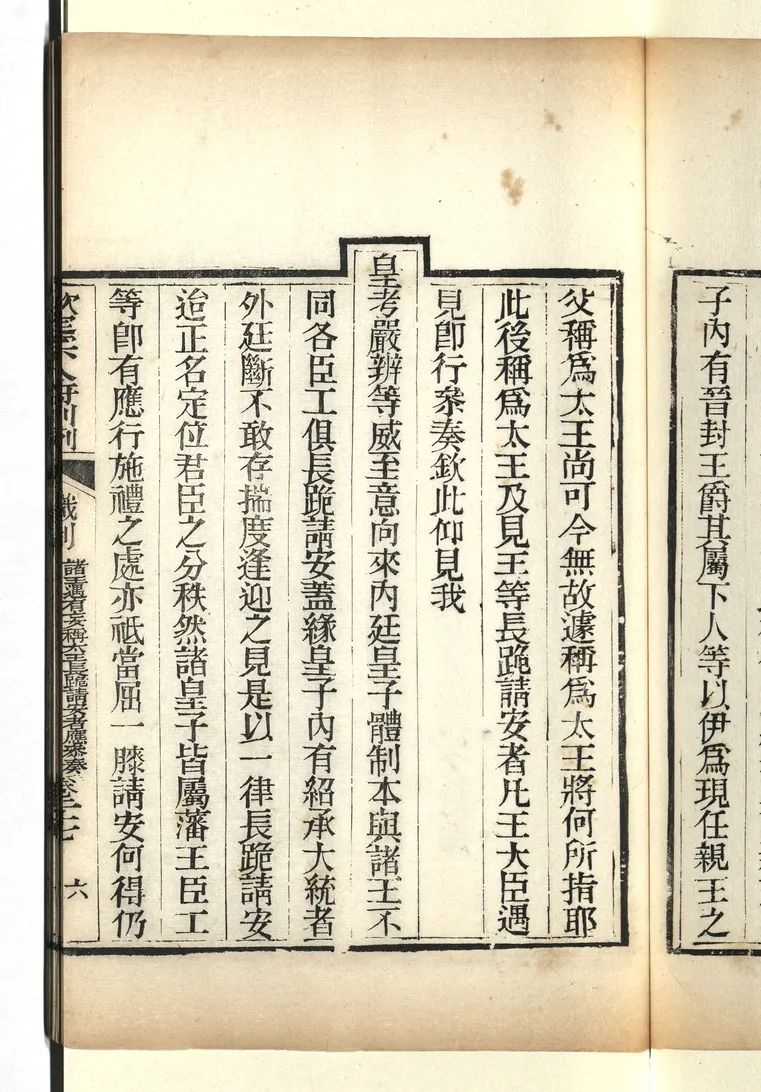 子內有晉封王爵其屬下人等以伊爲現任親王之
父稱爲太王尚可今無故遽稱爲太王將何所指耶
此後稱爲太王及見王等長跪請安者凡王大臣遇
見卽行叅奏欽此仰見我
皇考嚴辨等威至意向來內廷皇子體制本與諸王不
同各臣工俱長跪請安蓋緣皇子內有紹承大統者
外廷斷不敢存揣度逢迎之見是以一律長跪請安
迨正名定位君臣之分秩然諸皇子皆屬藩王臣工
等卽有應行施禮之處亦祇當屈一膝請安何得仍
諸王遇有妄稱太王長跪請安者應叅奏
六